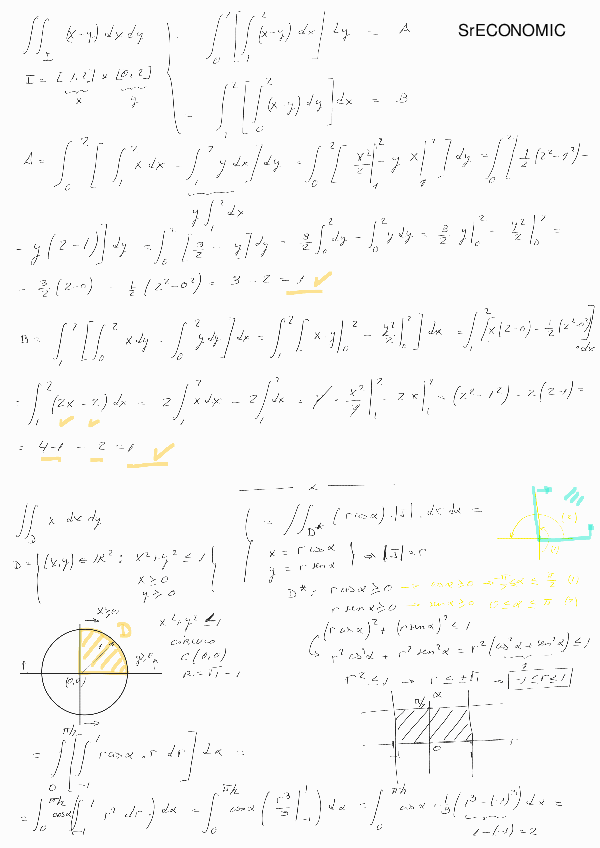 SrECONOMIC
∬_I (x-y) dx dy
I = [1,2] × [0,2]
x y
∫_0^2 [∫_1^2 (x-y) dx] dy = A
∫_1^2 [∫_0^2 (x-y) dy] dx = B
A = ∫_0^2 [∫_1^2 x dx - ∫_1^2 y dx] dy = ∫_0^2 [x²/2 |_1^2 - y x |_1^2] dy = ∫_0^2 [1/2 (2²-1²) -
y ∫_1^2 dx
- y (2-1)] dy = ∫_0^2 [3/2 - y] dy = 3/2 ∫_0^2 dy - ∫_0^2 y dy = 3/2 y |_0^2 - y²/2 |_0^2 =
= 3/2 (2-0) - 1/2 (2²-0²) = 3 - 2 = 1 ✓
B = ∫_1^2 [∫_0^2 x dy - ∫_0^2 y dy] dx = ∫_1^2 [x y |_0^2 - y²/2 |_0^2] dx = ∫_1^2 [x (2-0) - 1/2 (2²-0²)]
· dx
= ∫_1^2 (2x - 2) dx = 2 ∫_1^2 x dx - 2 ∫_1^2 dx = 2 · x²/2 |_1^2 - 2x |_1^2 = (2²-1²) - 2(2-1) =
= 4-1 - 2 = 1 ✓
∬_D x dx dy
D = {(x,y) ∈ ℝ² : x²+y² ≤ 1
x ≥ 0
y ≥ 0}
= ∬_D* (r cos α) · |J| · dr dα =
x = r cos α
y = r sen α
⇒ |J| = r
D*: r cos α ≥ 0
r sen α ≥ 0
(r cos α)² + (r sen α)² ≤ 1
r² cos² α + r² sen² α = r² (cos² α + sen² α) ≤ 1
1
r² ≤ 1 → r ≤ ±√1 → -1 ≤ r ≤ 1
x ≥ 0
D
(0,0)
x²+y² ≤ 1
círculo
C (0,0)
R = √1 = 1
π/2
α
0
r
= ∫_0^{π/2} [∫_{-1}^1 r cos α · r dr] dα =
= ∫_0^{π/2} cos α (∫_{-1}^1 r² dr) dα = ∫_0^{π/2} cos α (r³/3 |_{-1}^1) dα = ∫_0^{π/2} cos α · 1/3 (1³ - (-1)³) dα =
1-(-1) = 2